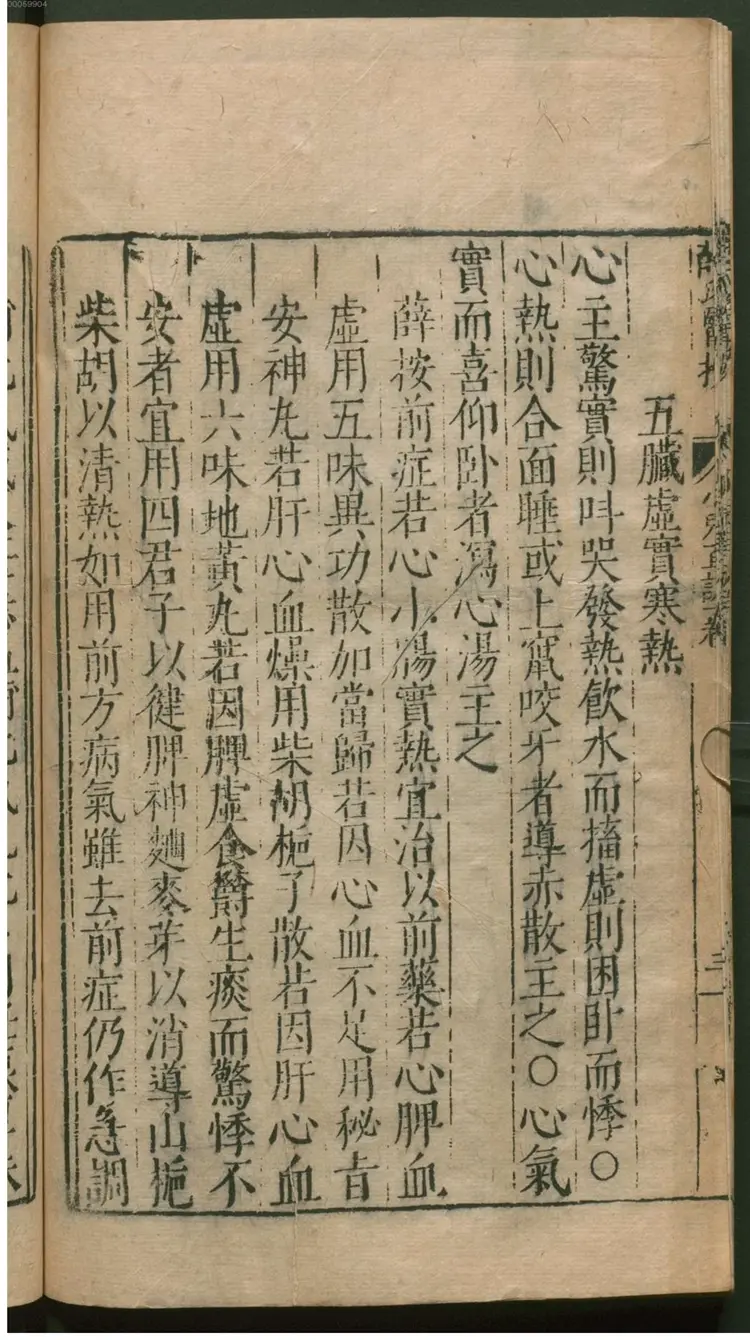 00059904
五臟虛實寒熱
心主驚實則呌哭發熱飲水而搐虛則困卧而悸○
心熱則合面睡或上竄咬牙者導赤散主之○心氣
實而喜仰卧者瀉心湯主之
薛按前症若心小腸實熱宜治以前藥若心脾血
虛用五味異功散加當歸若因心血不足用秘旨
安神丸若肝心血燥用柴胡梔子散若因肝心血
虛用六味地黃丸若因脾虛食欝生痰而驚悸不
安者宜用四君子以健脾神麯麥芽以消導山梔
柴胡以清熱如用前方病氣雖去前症仍作急調